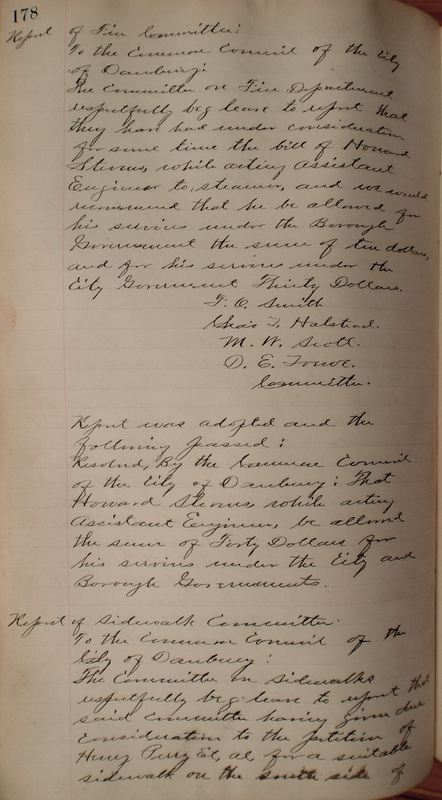 178
Report of Fire Committee:
To the Common Council of the City
of Danbury:
The Committee on Fire Department
respectfully beg leave to report that
they have had under consideration
for some time the bill of Howard
Stevens, while acting Assistant
Engineer to steamer, and we would
recommend that he be allowed for
his services under the Borough
Government the sum of ten dollars,
and for his services under the
City Government Thirty Dollars.
F. O. Smith
Chas T. Halstead.
M. W. Scott.
D. E.
Committee.
Report was adopted and the
following passed:
Resolved, By the Common Council
of the City of Danbury: That
Howard Stevens, while acting
Assistant Engineer, be allowed
the sum of Forty Dollars for
his services under the City and
Borough Governments.
Report of Sidewalk Committee.
To the Common Council of the
City of Danbury:
The Committee on Sidewalks
respectfully beg leave to report that
said committee having given due
consideration to the petition of
Henry Perry Et, al, for a suitable
sidewalk on the south side of